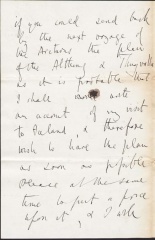 if you could send back
by the next voyage of
the Arcturus the plan
of the Althing & Thingvalla
as it is probable that
I shall write
an account of my visit
to Iceland, & therefore
wish to have the plan
as soon as possible
Please at the same
time to put a price
upon it, & I will